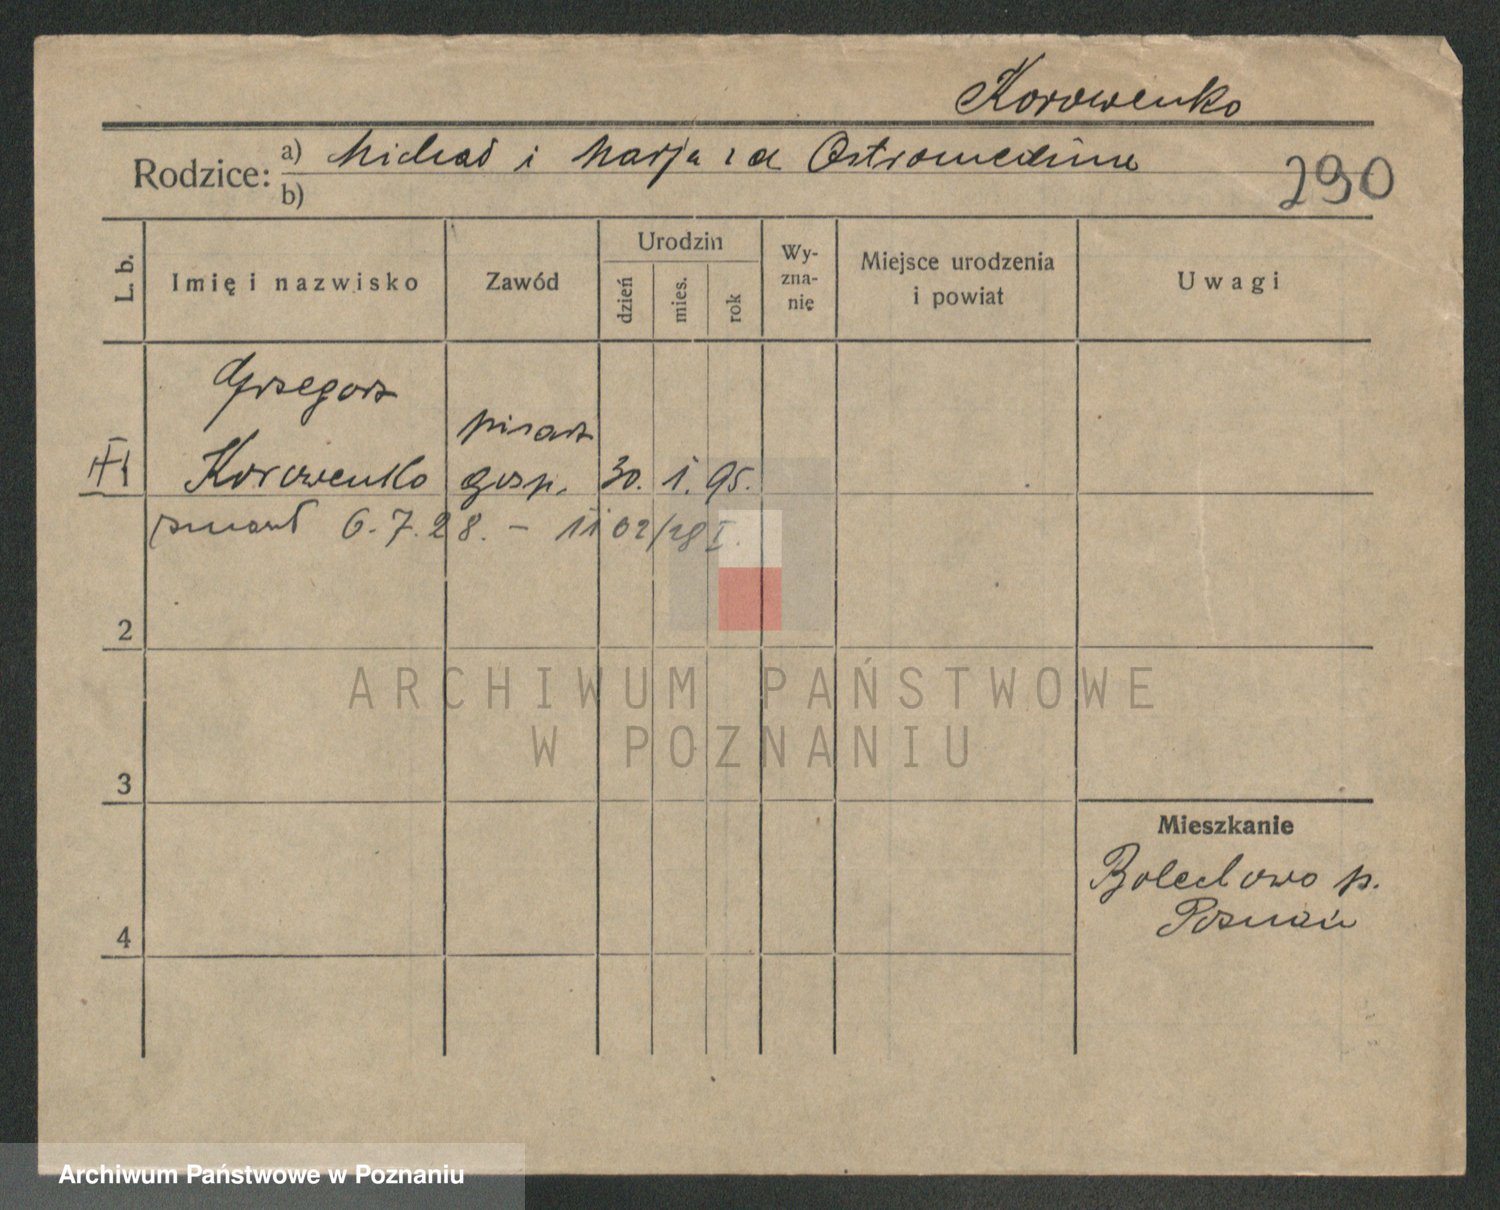 Korowenko
Rodzice: a) Michał i Marja z d Ostromedina
b)
290
L. b.
Imię i nazwisko
Zawód
Urodzin
dzień
mies.
rok
Wy-
zna-
nię
Miejsce urodzenia
i powiat
Uwagi
Grzegorz
Korowenko
pisarz
gosp.
30. 1. 95.
zmarł 6.7.28. – 1102/28 I.
2
3
4
Mieszkanie
Bolechowo p.
Poznań
ARCHIWUM PAŃSTWOWE
W POZNANIU
Archiwum Państwowe w Poznaniu